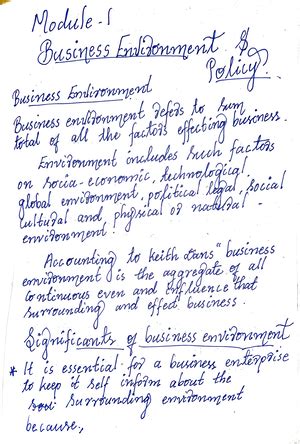 Module - 1
Business Environment &
Policy.
Business Environment
Business environment refers to sum
total of all the factors effecting business.
Environment includes such factors
on socia-economic, technological,
global environment, political legal, social
cultural and physical or natural
environment.
Accounting to keith dans "business
environment is the aggregate of all
continuous even and influence that
surrounding and effect business.
Significants of business environment
* It is essential for a business enterprise
to keep it self inform about the
surrounding environment
because,